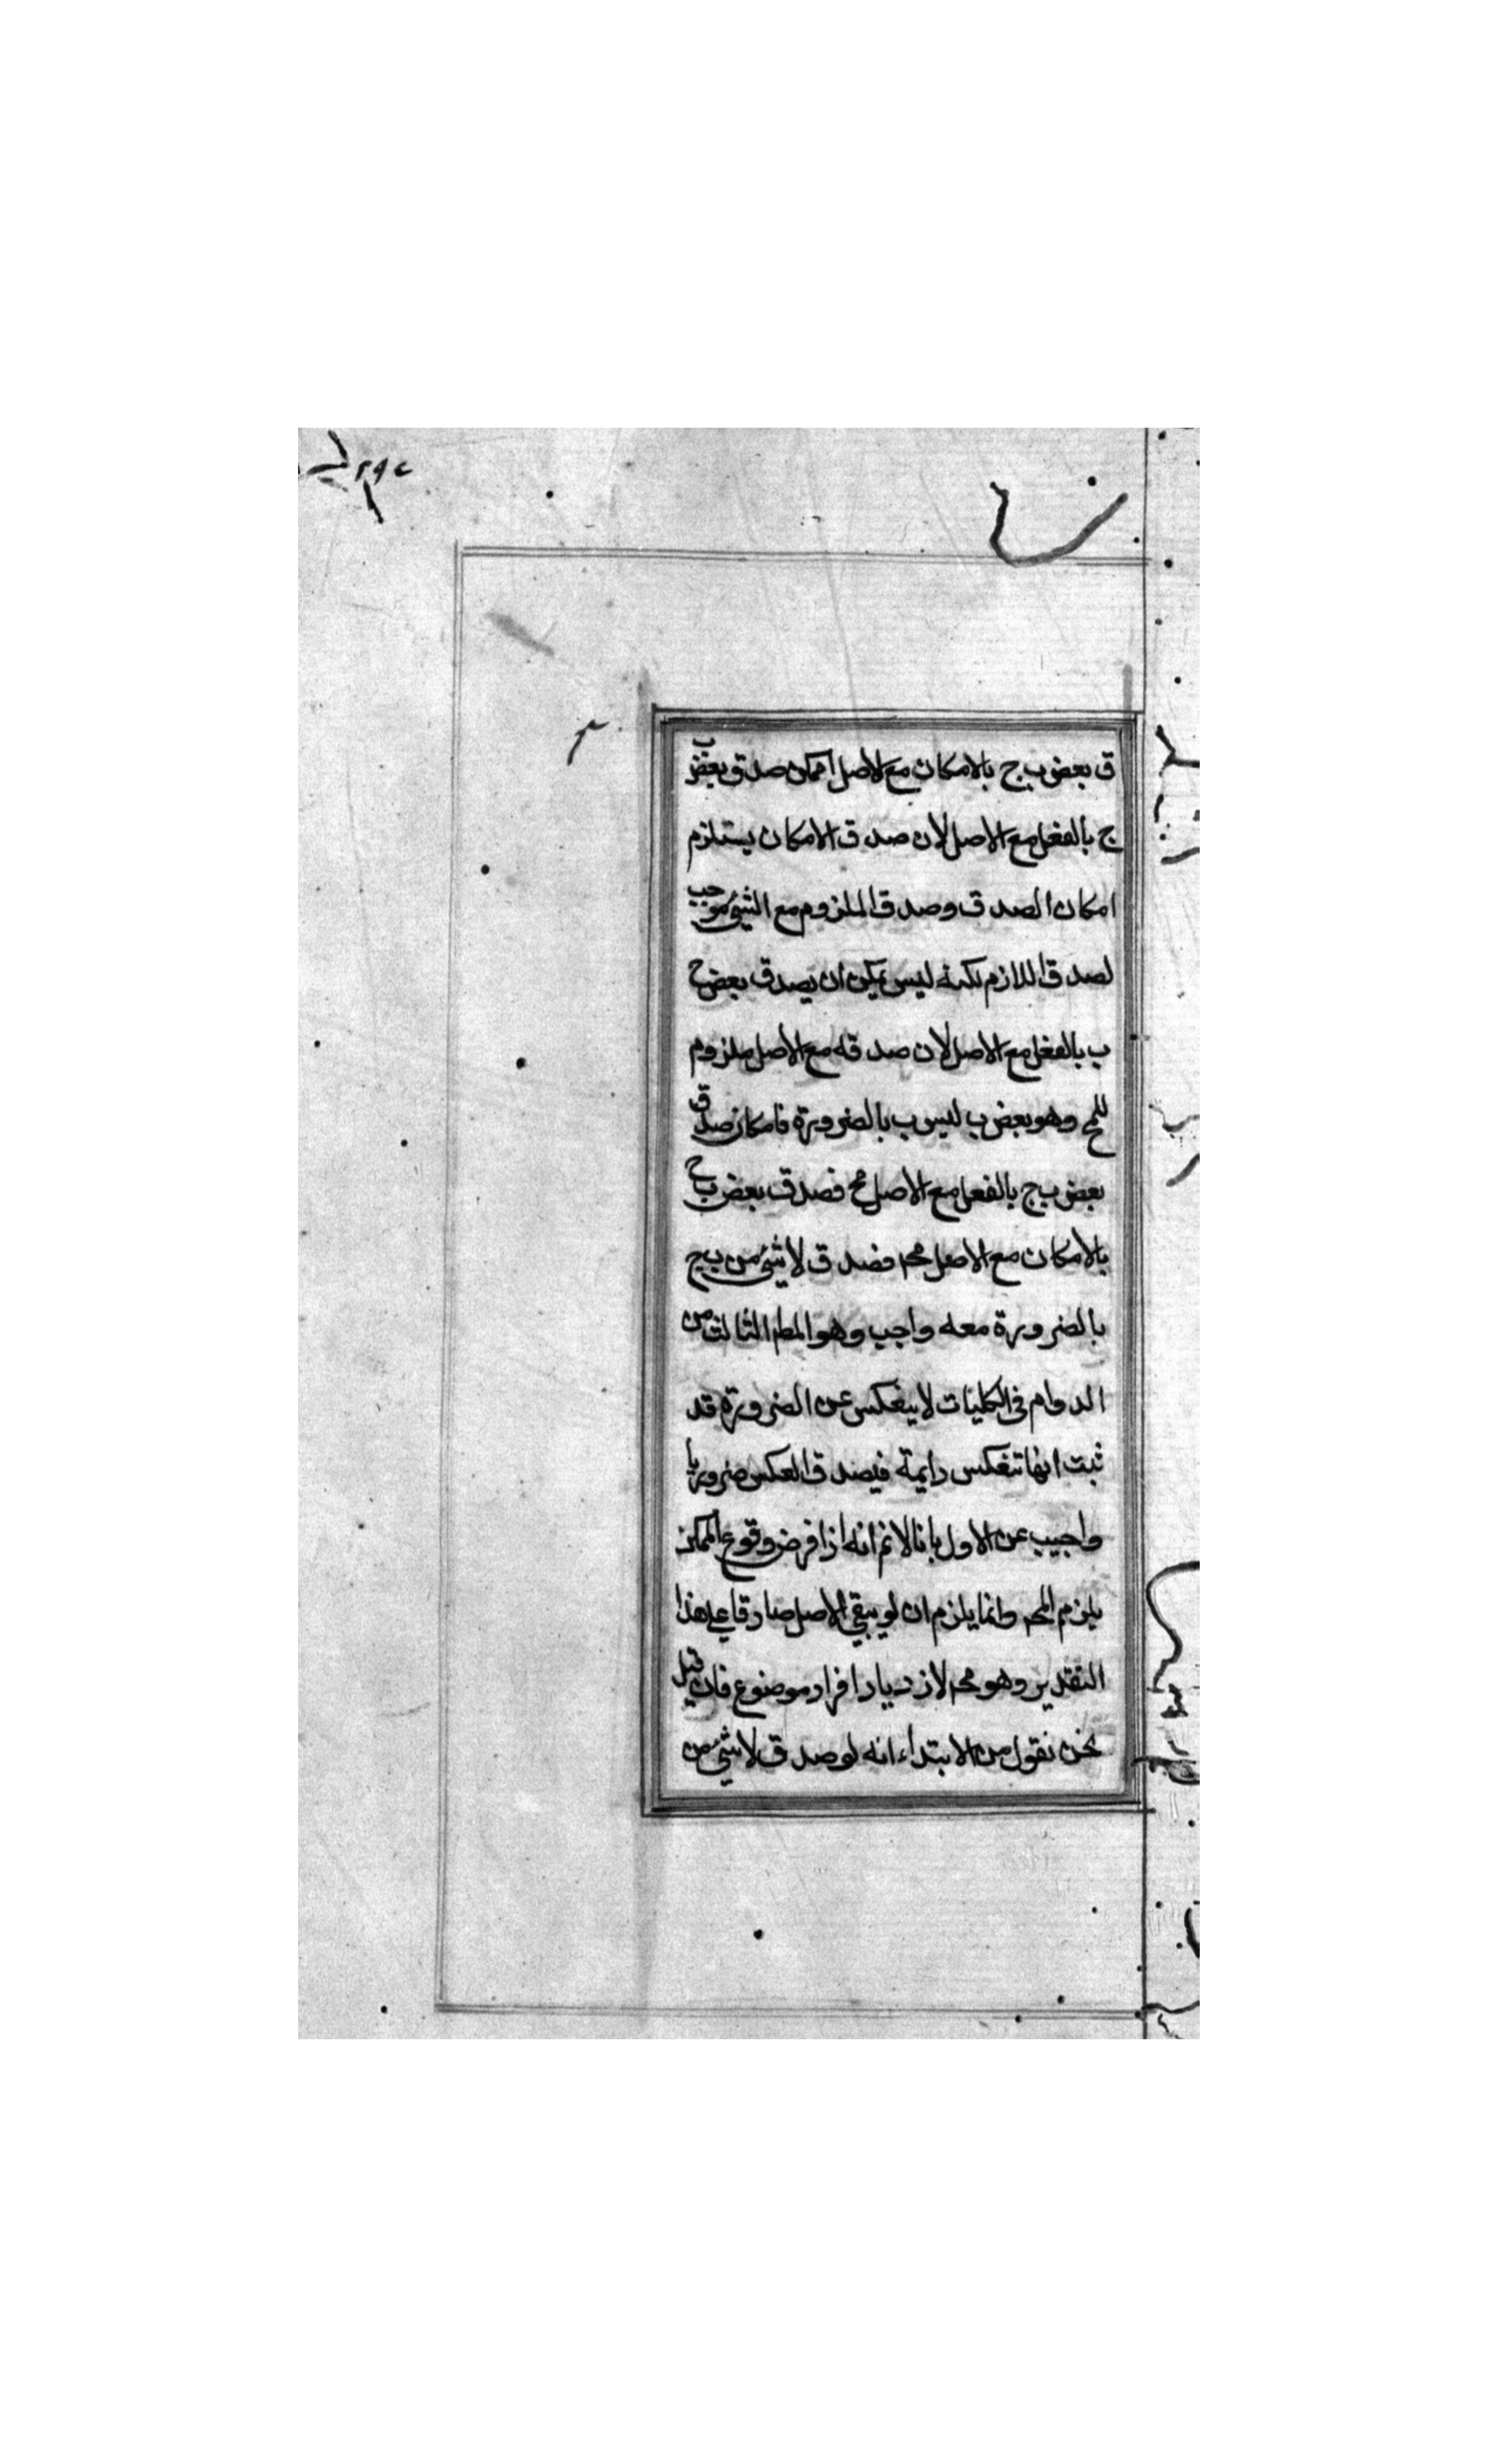 ٢٩٤
ق بعض ب ج بالامكان مع الاصل امكن صدق بعض ب
ج بالفعل مع الاصل لان صدق الامكان يستلزم
امكان الصدق وصدق الملزوم مع الشئ موجب
لصدق اللازم لكنه ليس يمكن ان يصدق بعض ج
ب بالفعل مع الاصل لان صدقه مع الاصل ملزوم
للمح وهو بعض ب ليس ب بالضرورة فامكان صدق
بعض ب ج بالفعل مع الاصل مح فصدق بعض ب ج
بالامكان مع الاصل محـ فصدق لا شئ من ب ج
بالضرورة معه واجب وهو المط الثالث من
الدوام فى الكليات لا ينفكس عن الضرورة قد
ثبت انها تنفكس دايمة فيصدق العكس ضروريا
واجيب عن الاول بانا لا نم انه اذا فرض وقوع الممكن
يلزم المحـ وانما يلزم ان لو يبقي الاصل صادقا على هذا
التقدير وهو محـ لازدياد افراد موضوع فان قيل
نحن نقول من الابتداء انه لو صدق لا شئ من